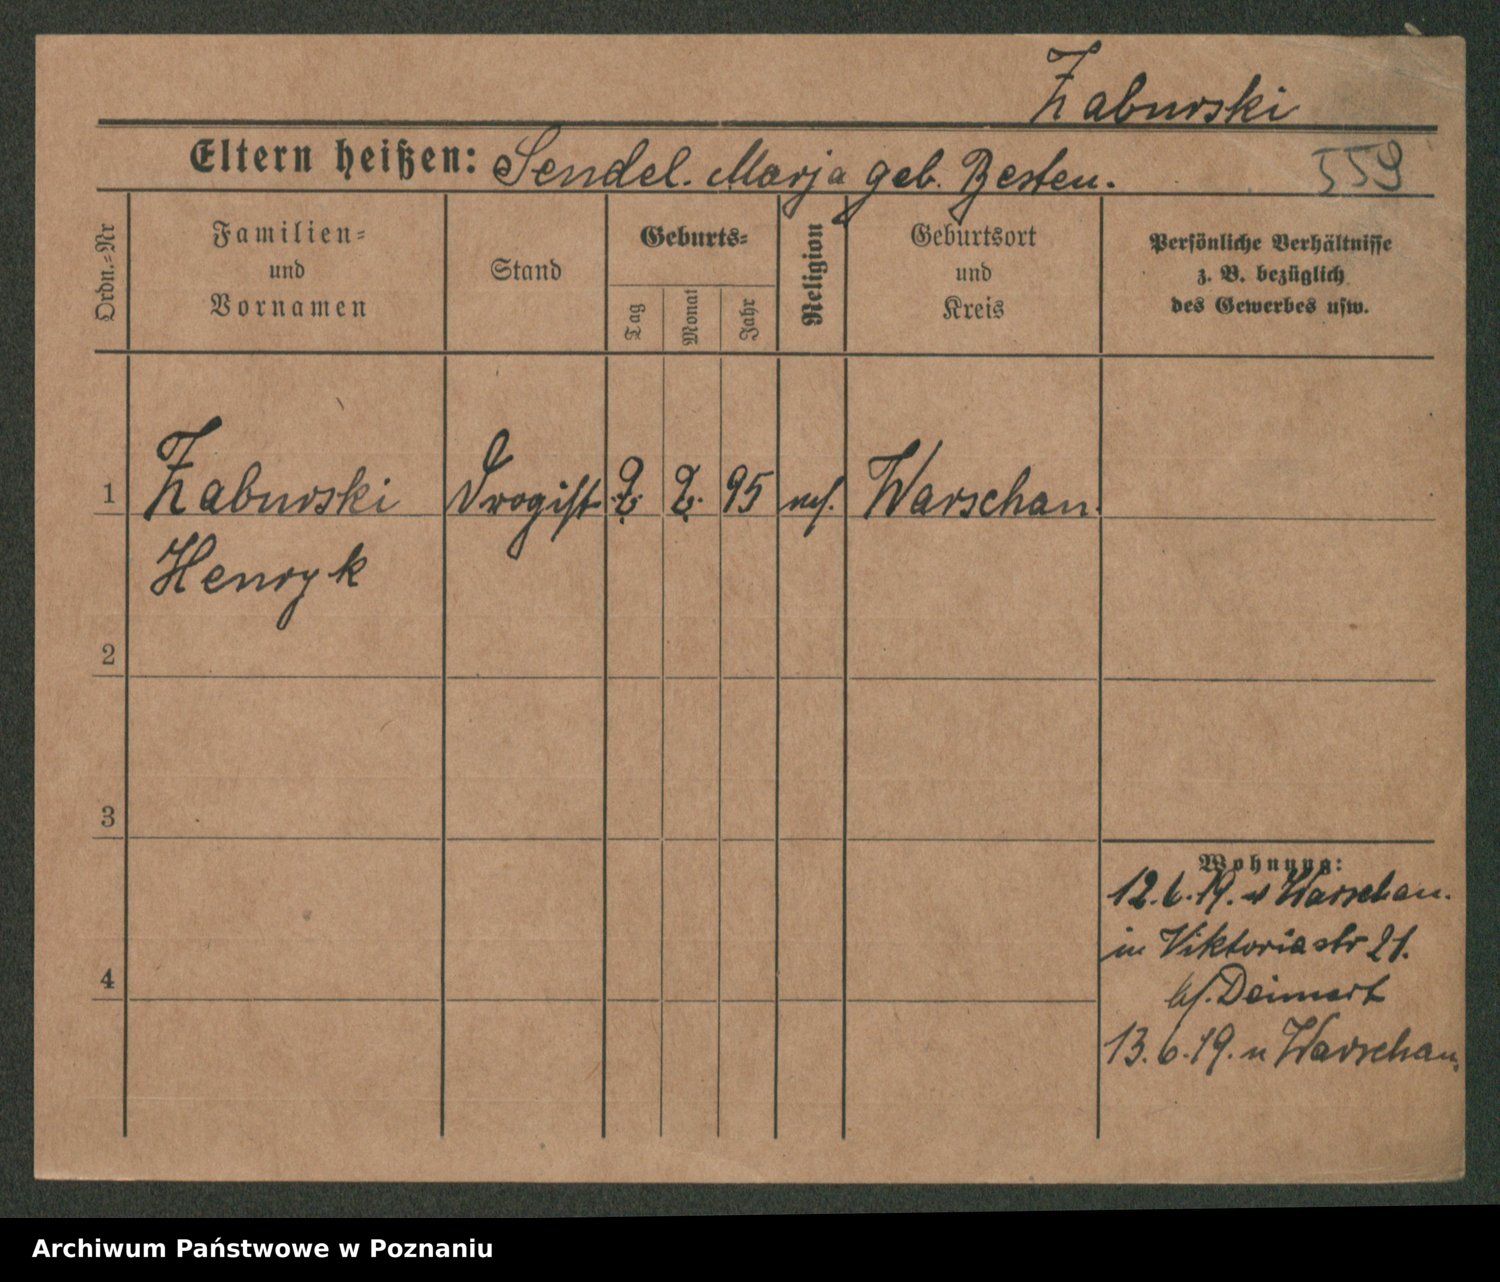 Zaburski
Eltern heißen: Sendel. Marja geb. Besten.
559
Ordn.=Nr
Familien=
und
Vornamen
Stand
Geburts=
Tag
Monat
Jahr
Religion
Geburtsort
und
Kreis
Persönliche Verhältnisse
z. B. bezüglich
des Gewerbes usw.
1 Zaburski Drogist 2. 2. 95 Warschau.
Henryk
2
3
4
Wohnung:
12.6.19. v Warschau.
in Viktoriastr 21.
bf.
13.6.19. n Warschau.
Archiwum Państwowe w Poznaniu